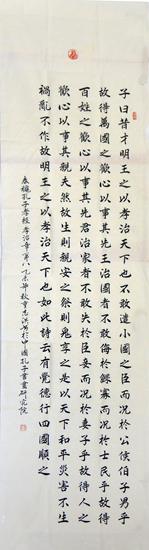 子曰昔者明王之以孝治天下也不敢遺小國之臣而況於公侯伯子男乎
故得萬國之歡心以事其先王治國者不敢侮於鰥寡而況於士民乎故得
百姓之歡心以事其先君治家者不敢失於臣妾而況於妻子乎故得人之
歡心以事其親夫然故生則親安之祭則鬼享之是以天下和平災害不生
禍亂不作故明王之以孝治天下也如此詩云有覺德行四國順之
孔子孝經孝治章第八乙未年秋於中國孔子書畫研究院